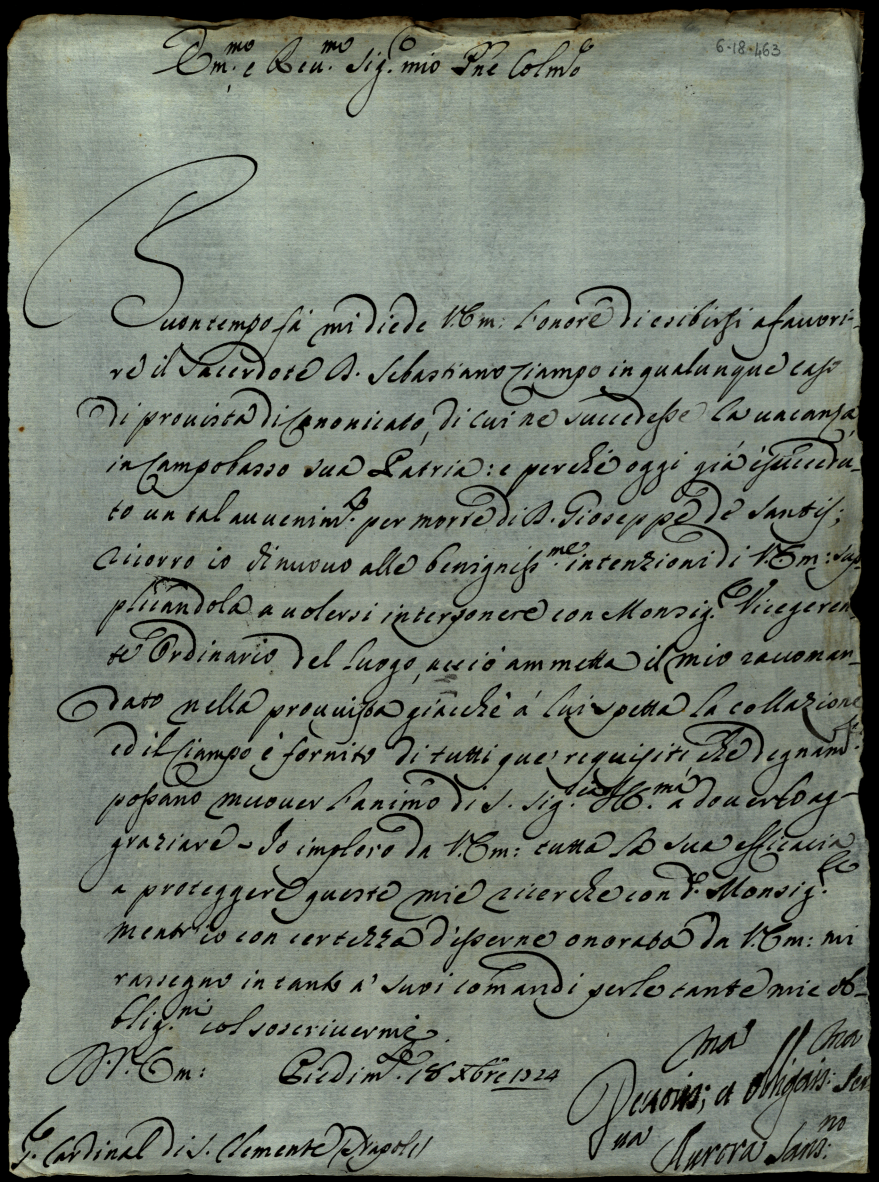 6-18-463
Em.mo e Reu.mo Sig.e mio P.ne Colmo
Buon tempo fà mi diede V. Em: l'onore di esibirsi a fauori-
re il Sacerdote D. Sebastiano Ciampo in qualunque caso
di prouista di Canonicato, di cui ne succedesse la uacanza
in Campobasso sua Patria: e perche oggi già è succedu-
to un tal auuenim.to per morte di D. Gioseppe de Santis;
ricorro io di nuouo alle benigniss.me intenzioni di V. Em: sup-
plicandola a uolersi interponere con Monsig.e Vicegeren-
te Ordinario del luogo, acciò ammetta il mio raccoman-
dato nella prouista giacche à lui spetta la collazione
ed il Ciampo è fornito di tutti que' requisiti che degnam.te
possano muouer l'animo di S. Sig.ria Ill.ma a douerlo ag-
graziare - Io imploro da V. Em: tutta la sua efficacia
a proteggere queste mie ricerche con d.o Monsig.re
mentr'io con certezza d'esserne onorata da V. Em: mi
rassegno in tanto a' suoi comandi per le tante mie ob-
blig.ni col soscriuermi
D. V. Em: Piedim.te 18 Xbre 1724
Deuotis:ma et obligatis:ma Ser
ua
Aurora Sans:no
S.r Cardinal di S. Clemente Napoli